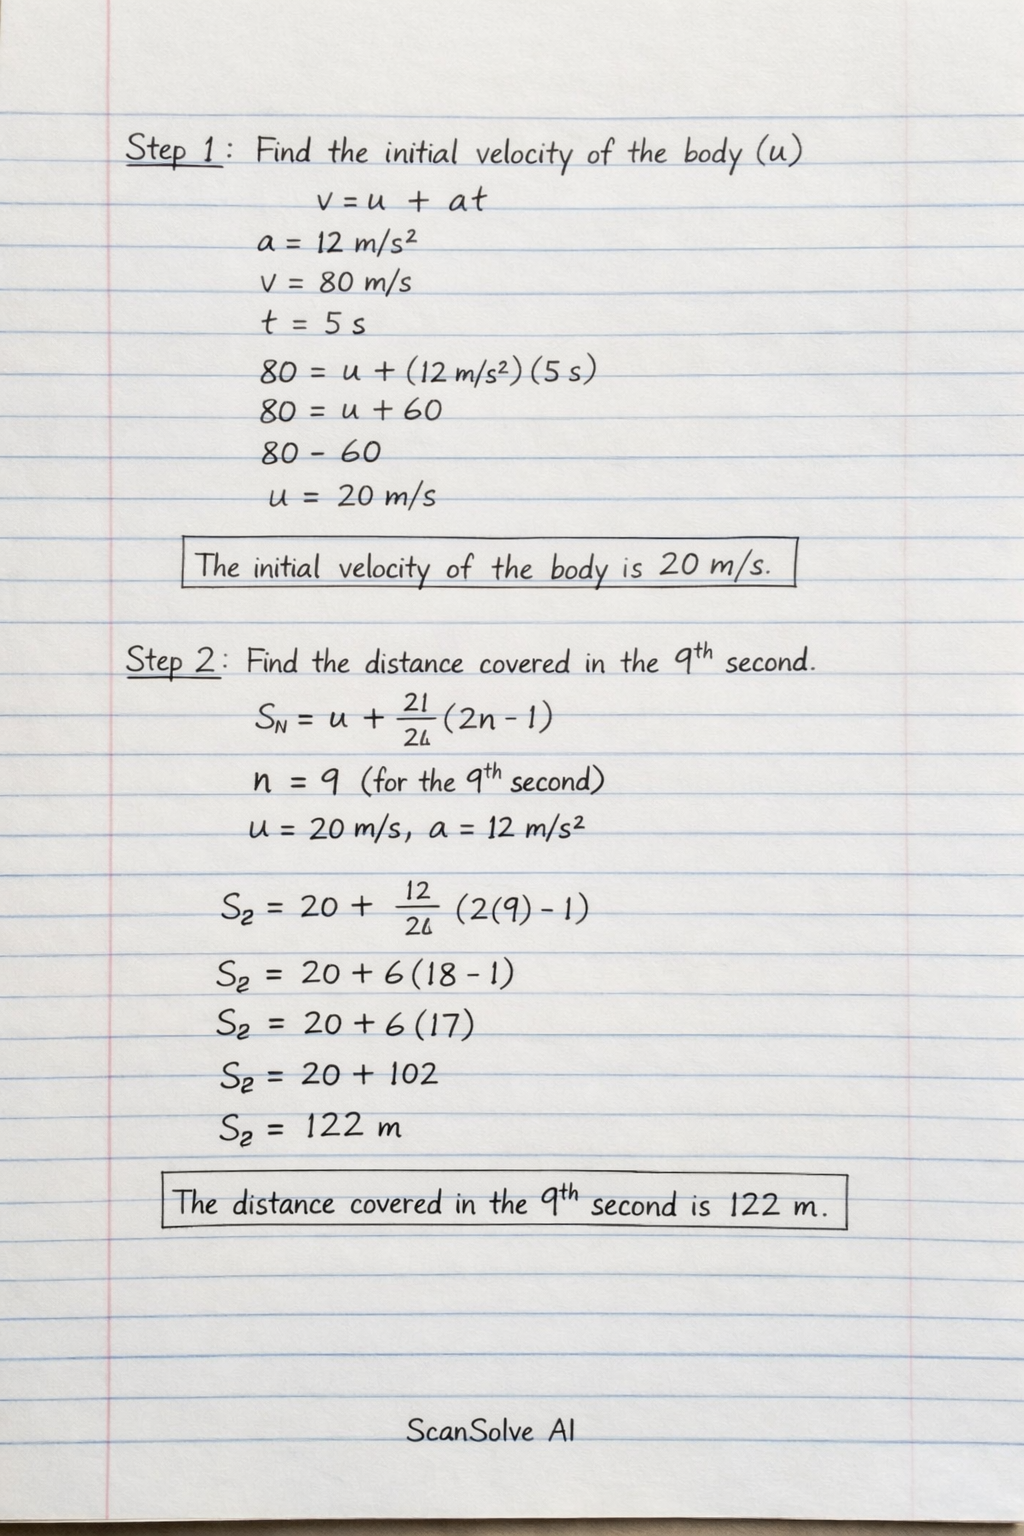 Step 1: Find the initial velocity of the body (u)
v = u + at
a = 12 m/s²
v = 80 m/s
t = 5 s
80 = u + (12 m/s²)(5 s)
80 = u + 60
80 - 60
u = 20 m/s
The initial velocity of the body is 20 m/s.
Step 2: Find the distance covered in the 9th second.
S_N = u + 21/24 (2n - 1)
n = 9 (for the 9th second)
u = 20 m/s, a = 12 m/s²
S₂ = 20 + 12/26 (2(9) - 1)
S₂ = 20 + 6(18 - 1)
S₂ = 20 + 6(17)
S₂ = 20 + 102
S₂ = 122 m
The distance covered in the 9th second is 122 m.
ScanSolve AI